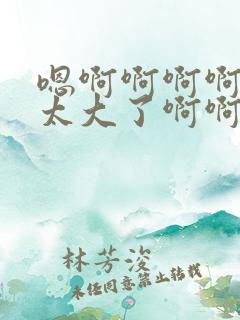 嗯啊啊啊啊
太大了啊啊
林芳浚
未经同意禁止转载